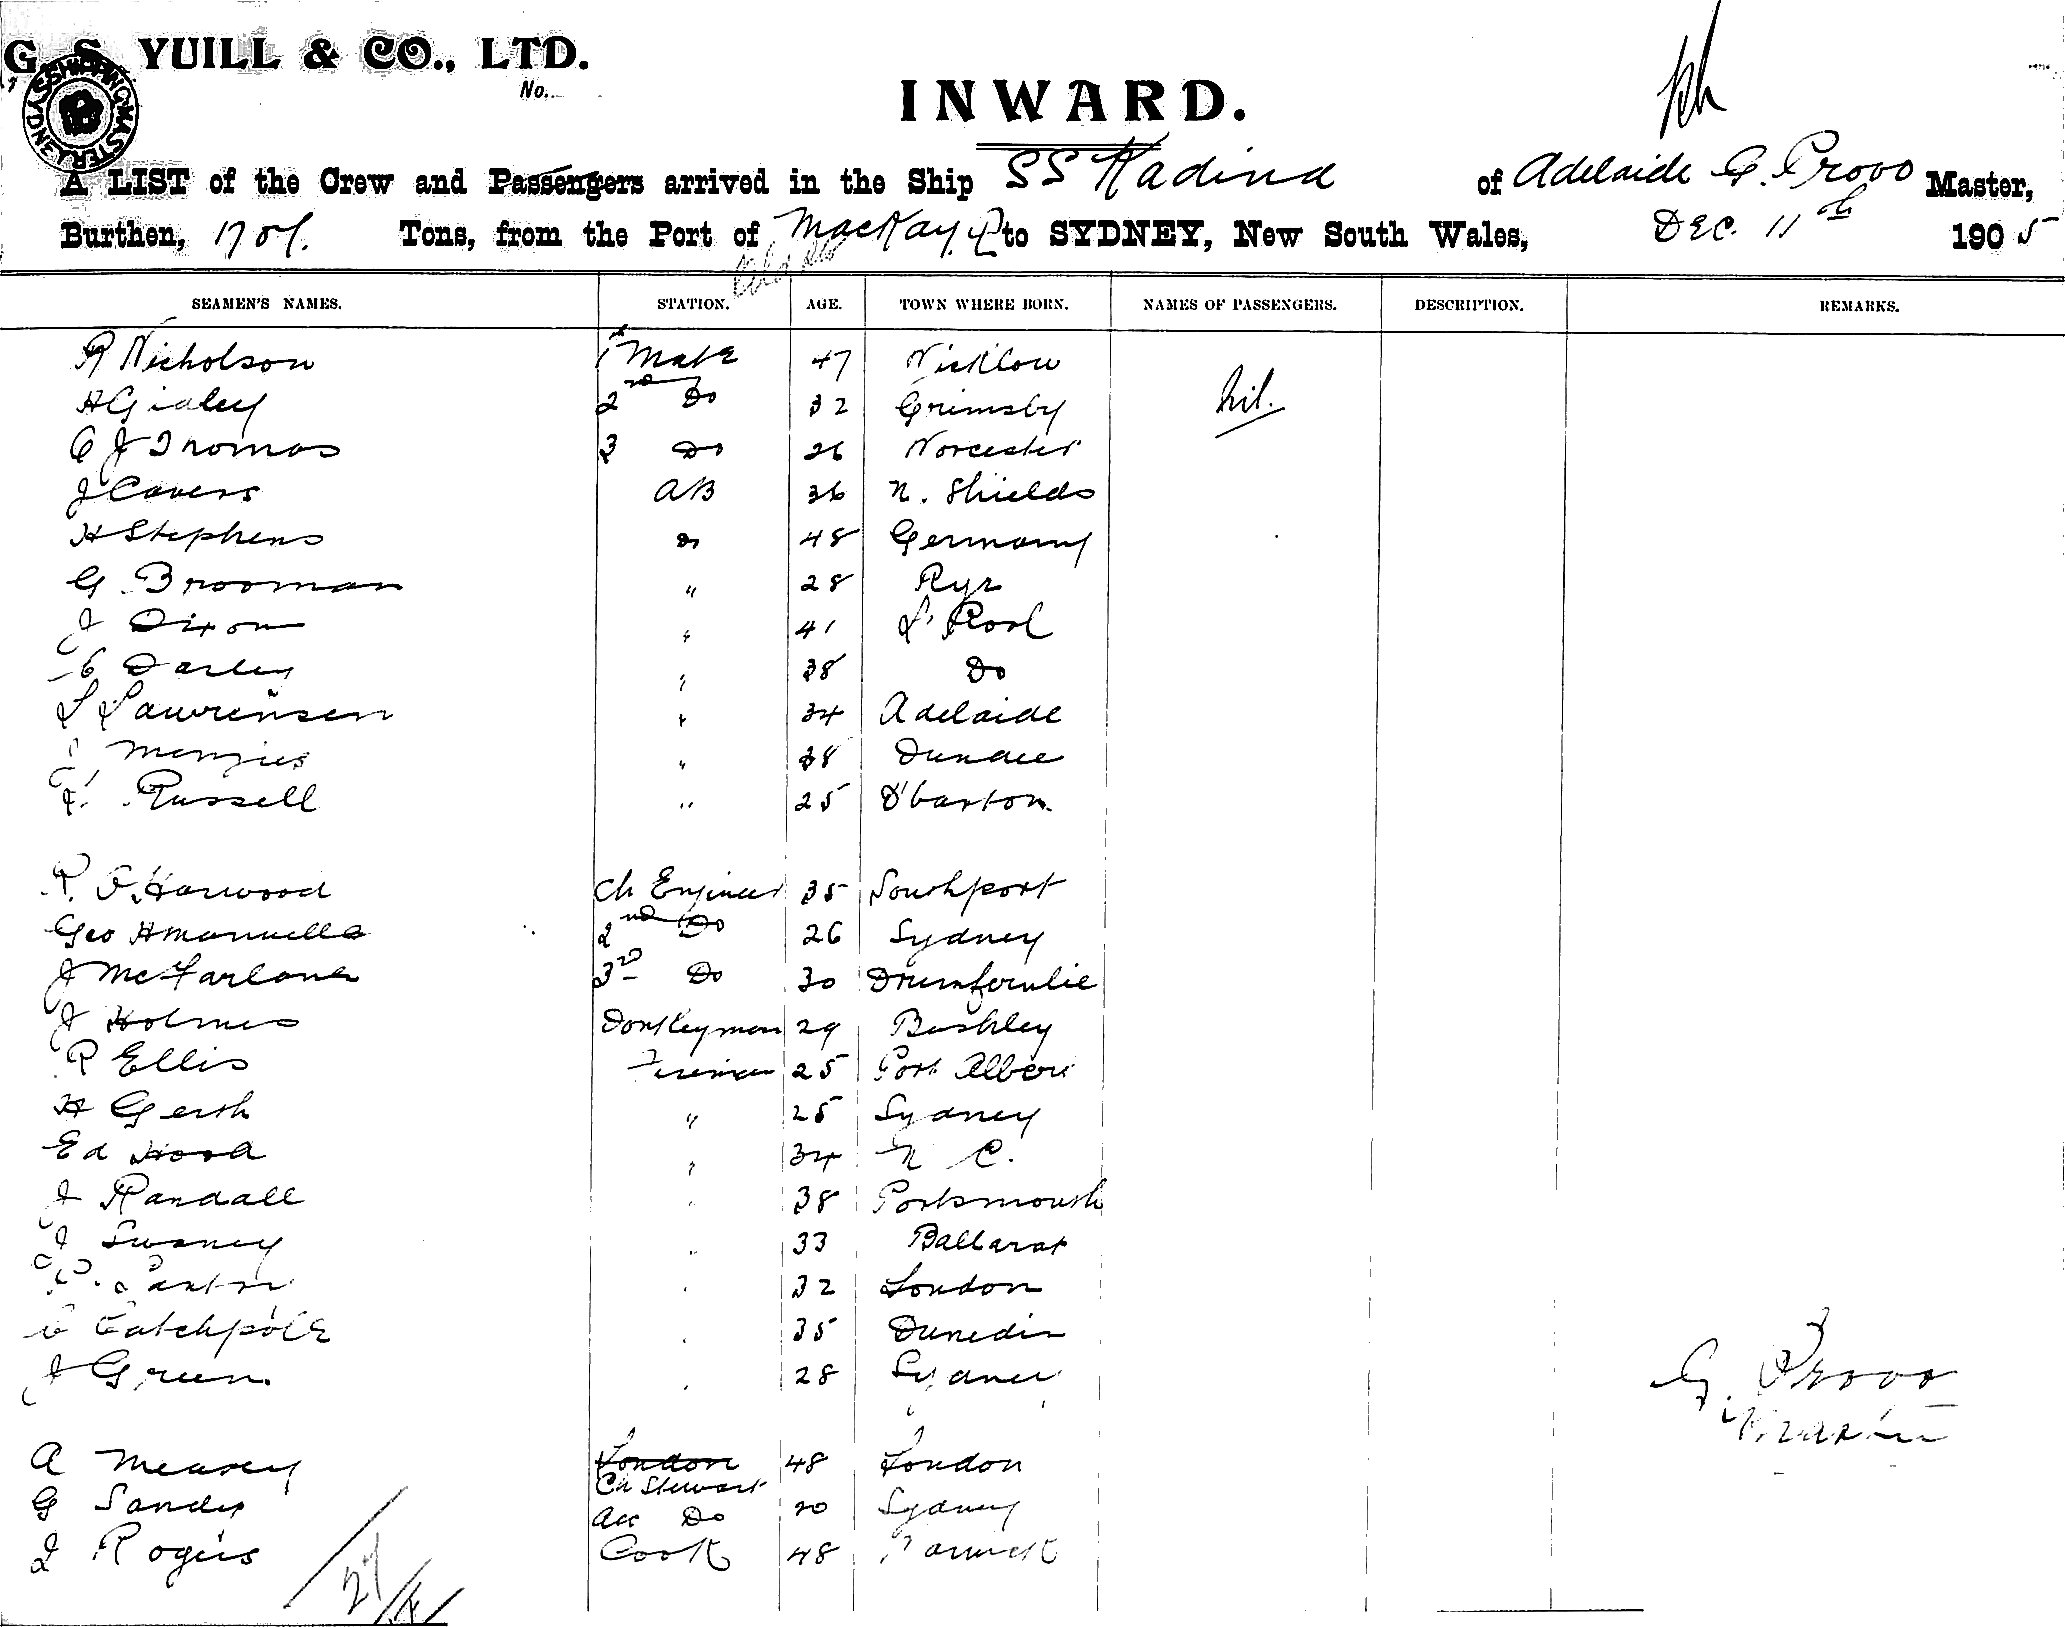 G. S. YUILL & CO., LTD.
No.
SHIPPING MASTER SYDNEY
INWARD.
A LIST of the Crew and Passengers arrived in the Ship SS Kadina of Adelaide G. Provo Master,
Burthen, 1701. Tons, from the Port of MacKay. Q to SYDNEY, New South Wales, DEC. 11th 1905
SEAMEN'S NAMES. STATION. AGE. TOWN WHERE BORN. NAMES OF PASSENGERS. DESCRIPTION. REMARKS.
R Nicholson 1st Mate 47 Wicklow
nil.
H Gidley 2nd Do 32 Grimsby
C J Thomas 3 Do 26 Worcester
J Cavers AB 36 N. Shields
H Stephens Do 48 Germany
G Brooman " 28 Rye
J Dixon " 41 L'Pool
C Darley " 38 Do
L Lawrensen " 34 Adelaide
J Menzies " 38 Dundee
J. Russell " 25 D'barton
R. F. Harwood Ch Engineer 35 Southport
Geo 2nd Do 26 Sydney
J McFarlane 3rd Do 30 Drumfernlie
J Holmes Donkeyman 29 Bushley
R Ellis Fireman 25 Port Albert
H Gersh " 25 Sydney
Ed Hood " 34 N C.
J Randall " 38 Portsmouth
J Swaney " 33 Ballarat
32 London
C Catchpole " 35 Dunedin
J Green " 28 Sydney
G. Provo
Master
A Measey London 48 London
Ch Stewart
G Sandy Ass Do 20 Sydney
J Rogers Cook 48 Warwick
27/